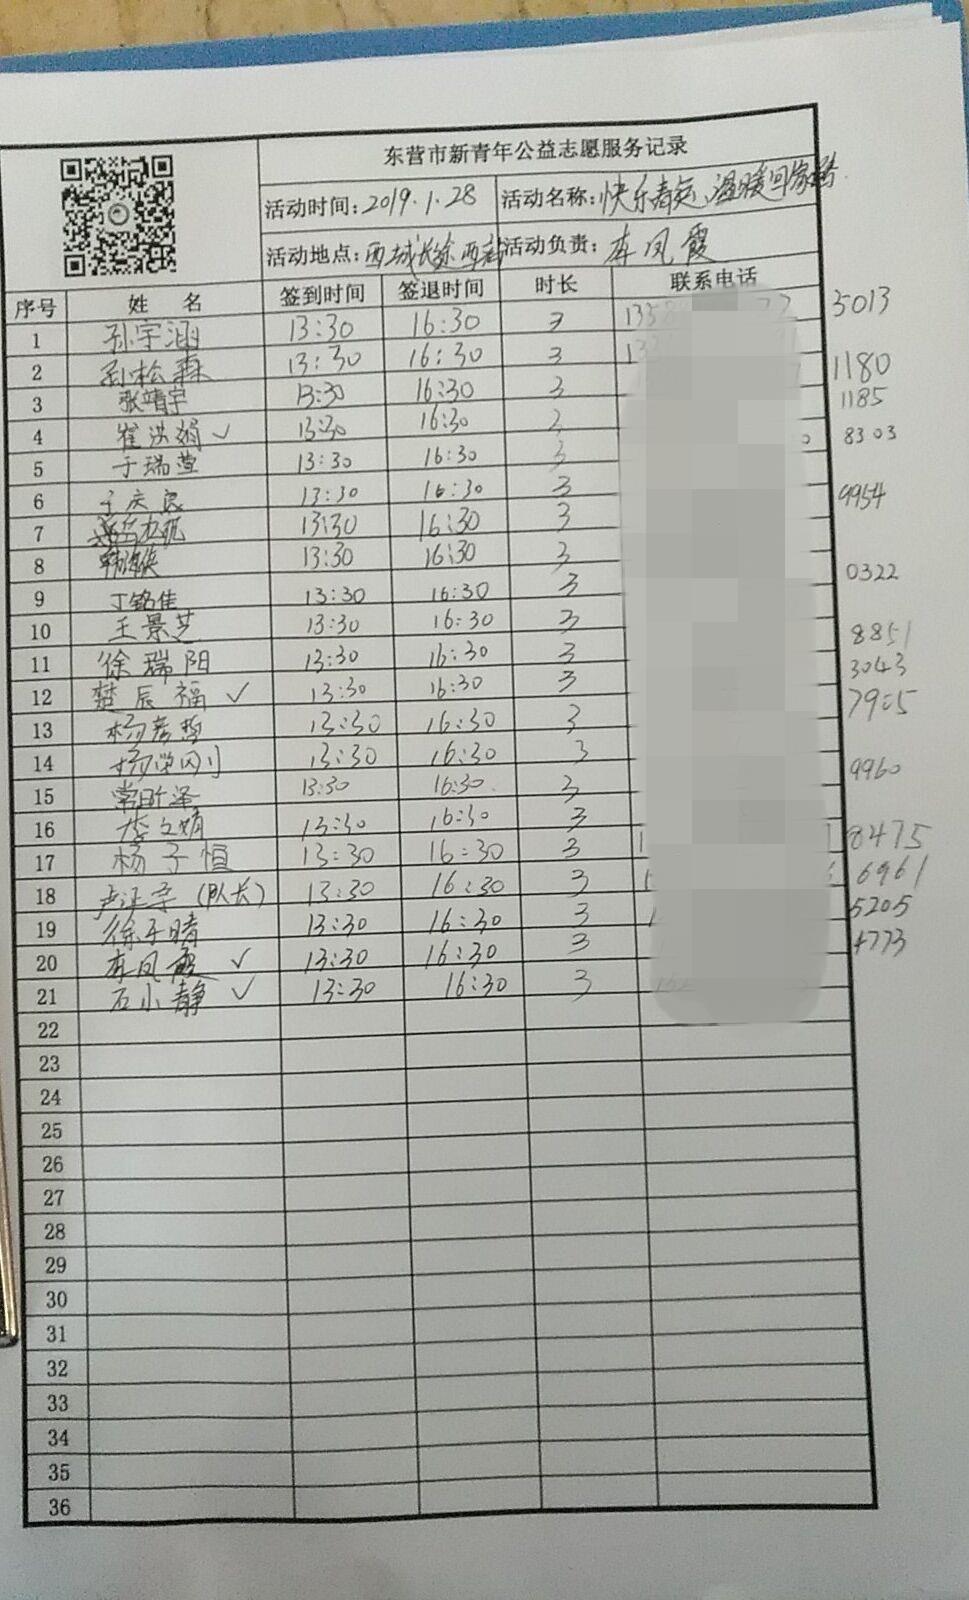 东营市新青年公益志愿服务记录
活动时间:2019.1.28 活动名称:快乐春运,温暖回家路.
活动地点:西城长途西站 活动负责:李凤霞
序号 姓 名 签到时间 签退时间 时长 联系电话
1 孙宇涵 13:30 16:30 3 5013
2 孙松森 13:30 16:30 3 1180
3 张靖宇 13:30 16:30 3 1185
4 崔洪娟 ✓ 13:30 16:30 3 8303
5 于瑞萱 13:30 16:30 3
6 庆 13:30 16:30 3 9954
7 13:30 16:30 3
8 13:30 16:30 3 0322
9 丁铭佳 13:30 16:30 3
10 王景艺 13:30 16:30 3 8851
11 徐瑞阳 13:30 16:30 3 3043
12 楚辰福 ✓ 13:30 16:30 3 7905
13 杨彦哲 13:30 16:30 3
14 杨 刚 13:30 16:30 3 9960
15 常昕泽 13:30 16:30 3
16 李文娟 13:30 16:30 3 8475
17 杨子恒 13:30 16:30 3 6961
18 (队长) 13:30 16:30 3 5205
19 徐子晴 13:30 16:30 3 4773
20 李凤霞 ✓ 13:30 16:30 3
21 石小静 ✓ 13:30 16:30 3
22
23
24
25
26
27
28
29
30
31
32
33
34
35
36